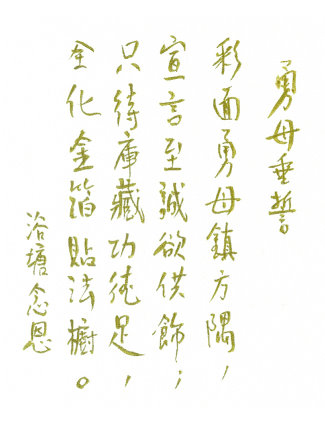 勇母垂誓
彩面勇母鎮方隅，
宣言至誠欲供飾；
只待庫藏功德足，
全化金箔貼法櫥。
浴塘念恩